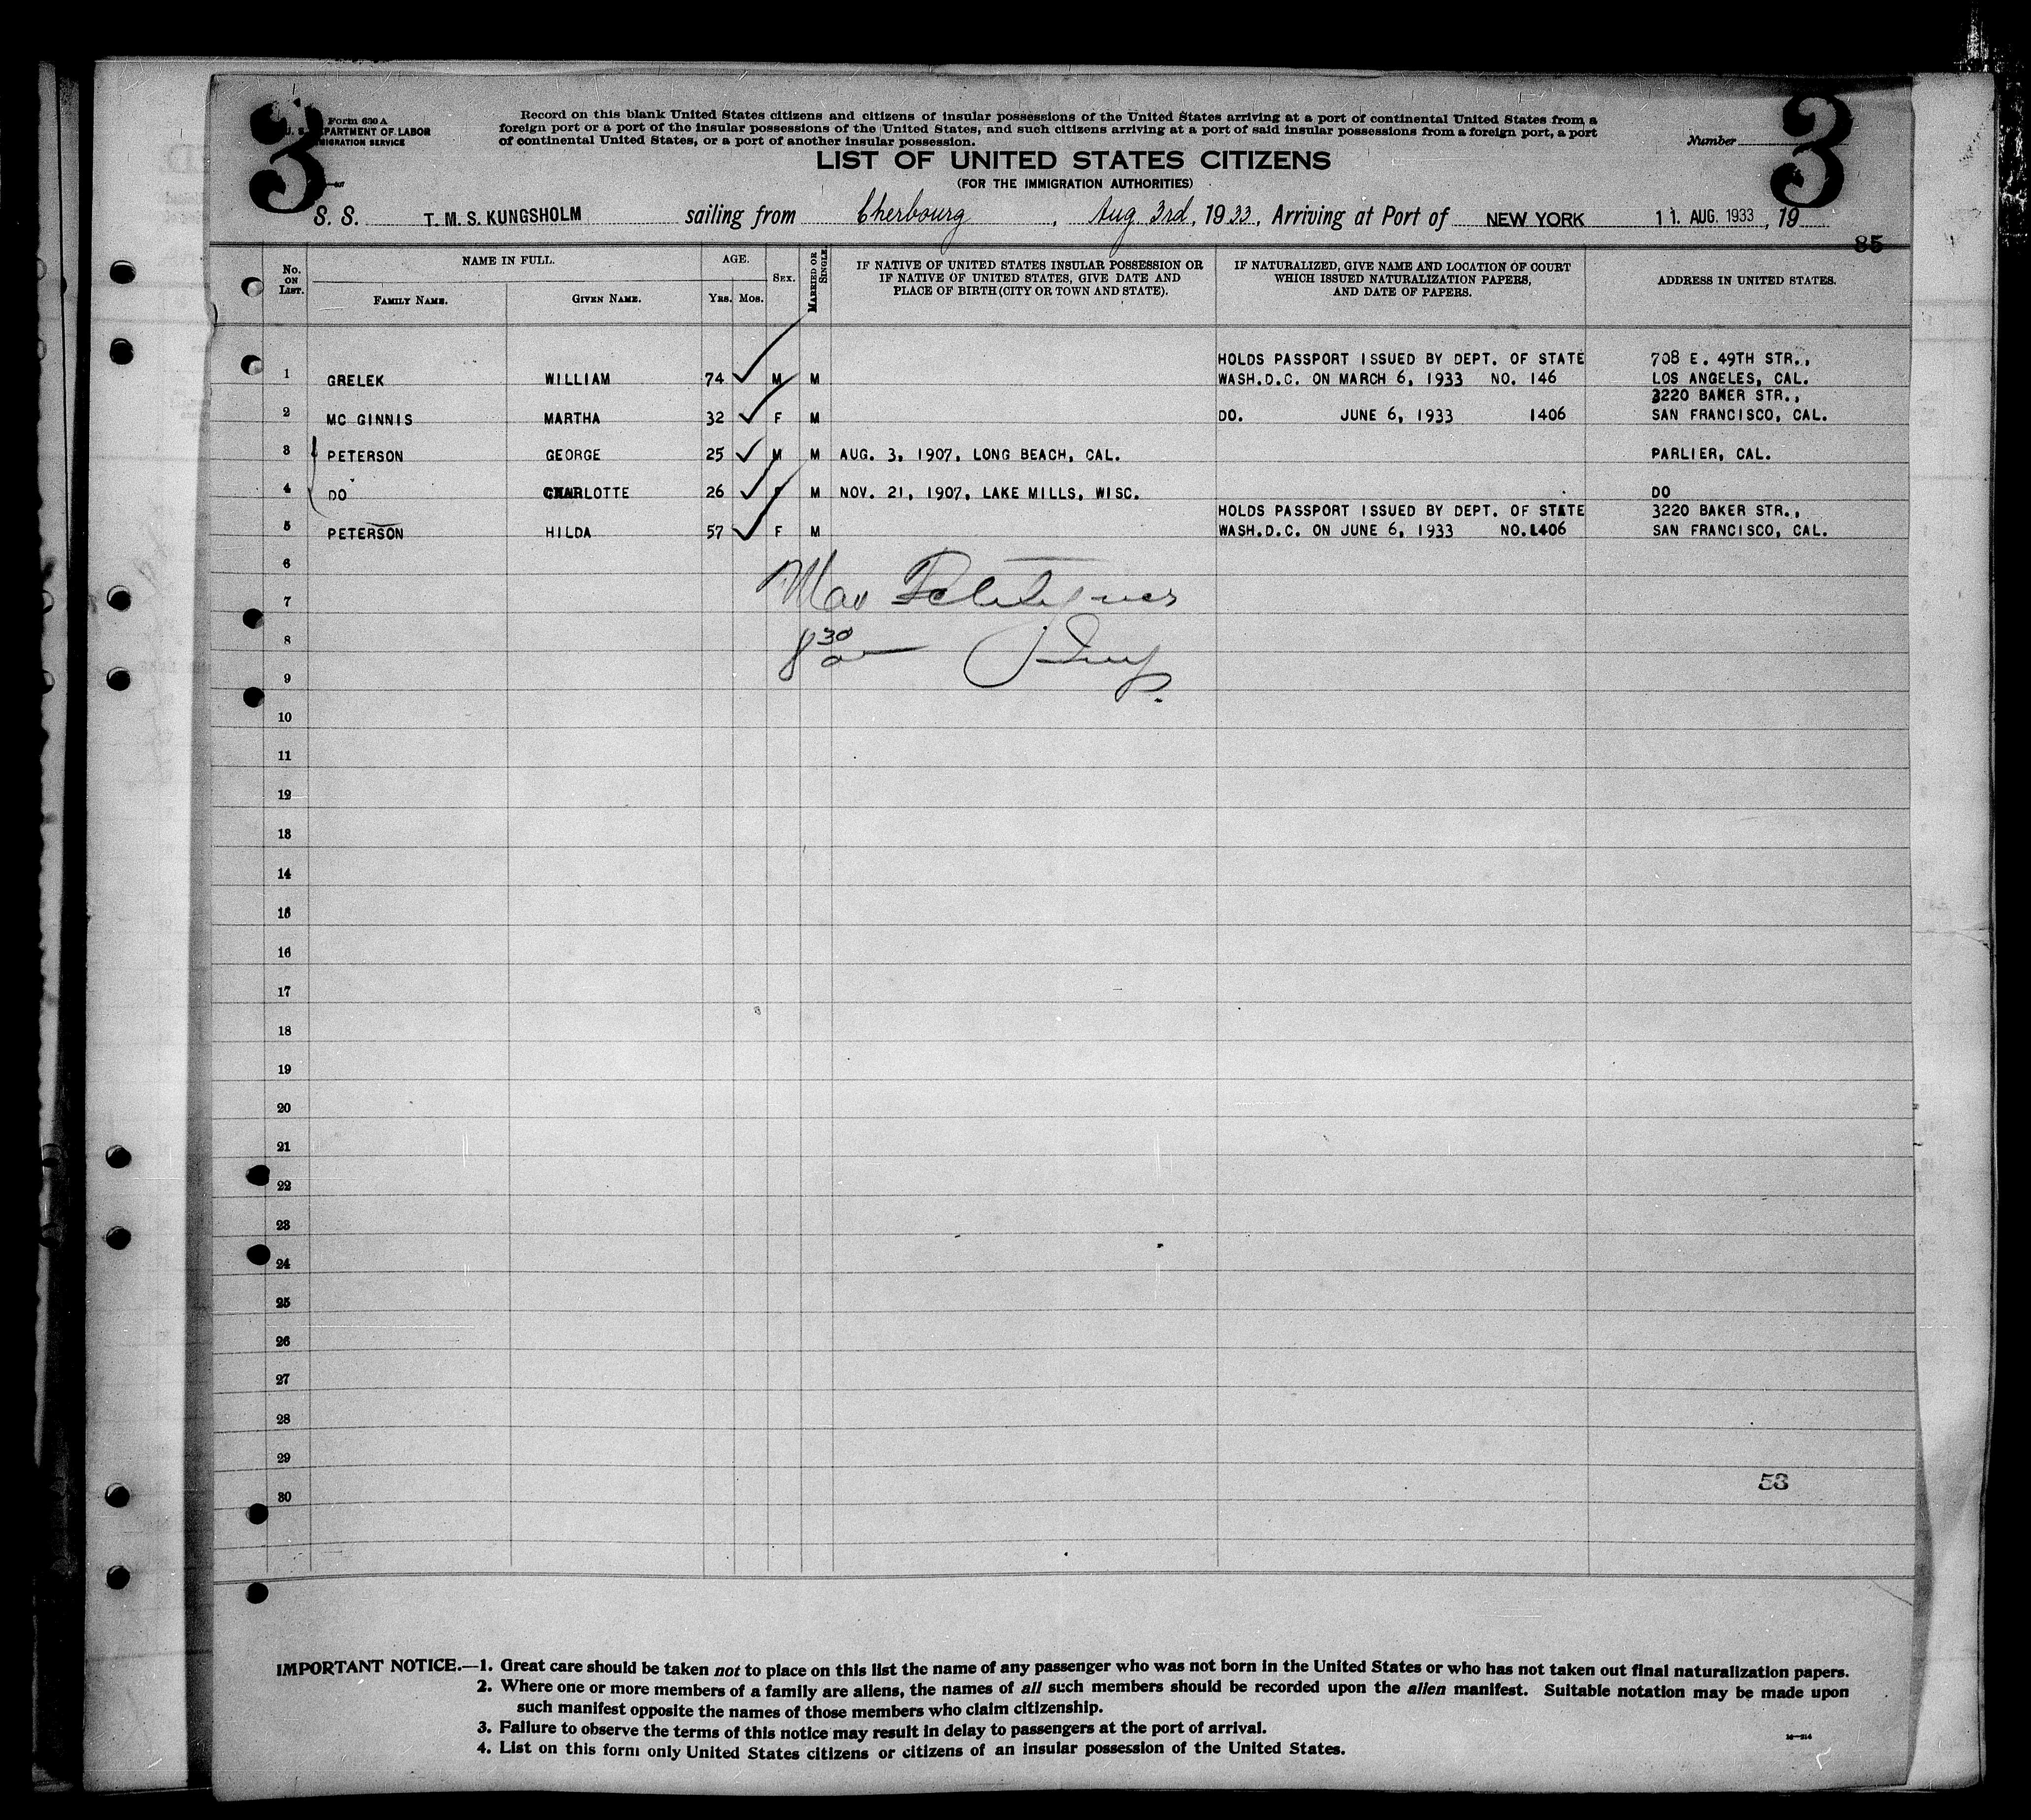 3 3
Form 630 A
U. S. DEPARTMENT OF LABOR
IMMIGRATION SERVICE
Record on this blank United States citizens and citizens of insular possessions of the United States arriving at a port of continental United States from a
foreign port or a port of the insular possessions of the United States, and such citizens arriving at a port of said insular possessions from a foreign port, a port
of continental United States, or a port of another insular possession.
Number
LIST OF UNITED STATES CITIZENS
(FOR THE IMMIGRATION AUTHORITIES)
S. S. T. M. S. KUNGSHOLM sailing from Cherbourg, Aug. 3rd, 1933, Arriving at Port of NEW YORK 11. AUG. 1933, 19
85
No. ON LIST. NAME IN FULL. FAMILY NAME. GIVEN NAME. AGE. YRS. MOS. SEX. MARRIED OR SINGLE. IF NATIVE OF UNITED STATES INSULAR POSSESSION OR IF NATIVE OF UNITED STATES, GIVE DATE AND PLACE OF BIRTH (CITY OR TOWN AND STATE). IF NATURALIZED, GIVE NAME AND LOCATION OF COURT WHICH ISSUED NATURALIZATION PAPERS, AND DATE OF PAPERS. ADDRESS IN UNITED STATES.
HOLDS PASSPORT ISSUED BY DEPT. OF STATE 708 E. 49TH STR.,
1 GRELEK WILLIAM 74 M M WASH.D.C. ON MARCH 6, 1933 NO. 146 LOS ANGELES, CAL.
3220 BAKER STR.,
2 MC GINNIS MARTHA 32 F M DO. JUNE 6, 1933 1406 SAN FRANCISCO, CAL.
3 PETERSON GEORGE 25 M M AUG. 3, 1907, LONG BEACH, CAL. PARLIER, CAL.
4 DO CHARLOTTE 26 F M NOV. 21, 1907, LAKE MILLS, WISC. DO
HOLDS PASSPORT ISSUED BY DEPT. OF STATE 3220 BAKER STR.,
5 PETERSON HILDA 57 F M WASH.D.C. ON JUNE 6, 1933 NO.1406 SAN FRANCISCO, CAL.
6
7
8 8 30
9
10
11
12
13
14
15
16
17
18
19
20
21
22
23
24
25
26
27
28
29
53
30
IMPORTANT NOTICE.—1. Great care should be taken not to place on this list the name of any passenger who was not born in the United States or who has not taken out final naturalization papers.
2. Where one or more members of a family are aliens, the names of all such members should be recorded upon the alien manifest. Suitable notation may be made upon
such manifest opposite the names of those members who claim citizenship.
3. Failure to observe the terms of this notice may result in delay to passengers at the port of arrival.
4. List on this form only United States citizens or citizens of an insular possession of the United States.